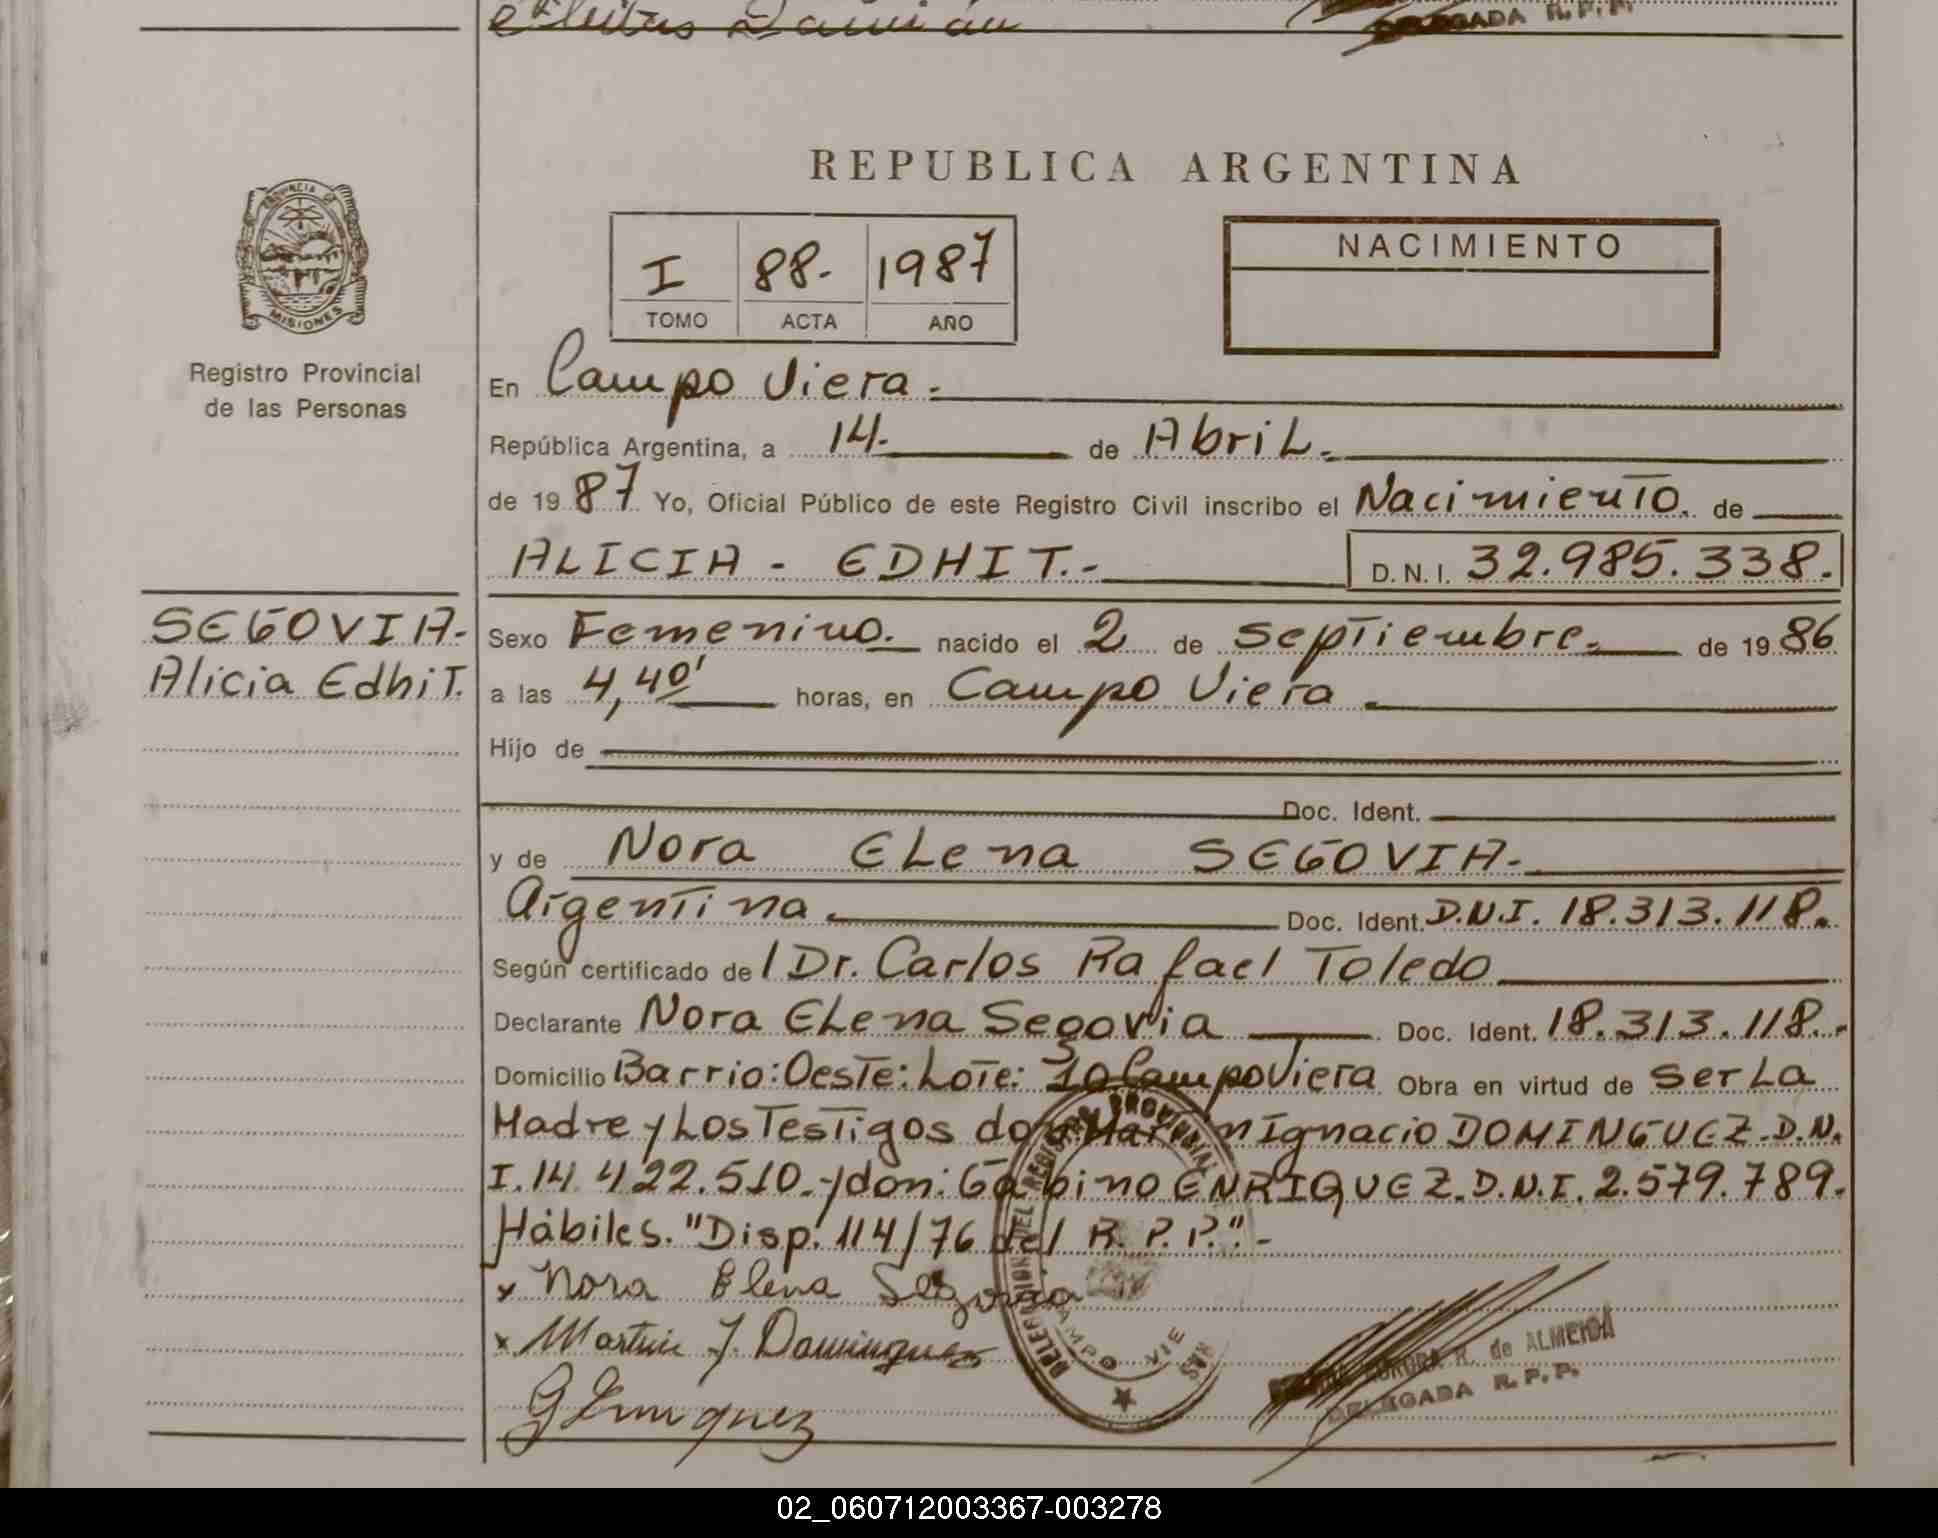 DELEGADA R.P.P.
REPUBLICA ARGENTINA
PROVINCIA DE
MISIONES
I 88.- 1987
TOMO ACTA AÑO
NACIMIENTO
Registro Provincial
de las Personas
En Campo Viera.-
República Argentina, a 14.- de Abril.-
de 1987 Yo, Oficial Público de este Registro Civil inscribo el Nacimiento. de
ALICIA - EDHIT.- D.N.I. 32.985.338.
SEGOVIA.-
Alicia Edhit.
Sexo Femenino. nacido el 2 de septiembre. de 1986
a las 4,40' horas, en Campo Viera
Hijo de
Doc. Ident.
y de Nora ELena SEGOVIA.-
Argentina. Doc. Ident. D.N.I. 18.313.118.
Según certificado del Dr. Carlos Rafael Toledo
Declarante Nora ELena Segovia Doc. Ident. 18.313.118.-
Domicilio Barrio: Oeste: Lote: 10 Campo Viera Obra en virtud de ser La
Madre y Los Testigos don Martin Ignacio DOMINGUEZ.D.N.
I.14.422.510.-y don: Gabino ENRIQUEZ.D.N.I. 2.579.789.
Hábiles. "Disp. 114/76 del R.P.P.".-
x Nora Elena Segovia
x Martin I. Dominguez
G Enriquez
DELEGACION DEL REGISTRO PROVINCIAL
CAMPO VIE
AURORA R. de ALMEIDA
DELEGADA R.P.P.
02_060712003367-003278